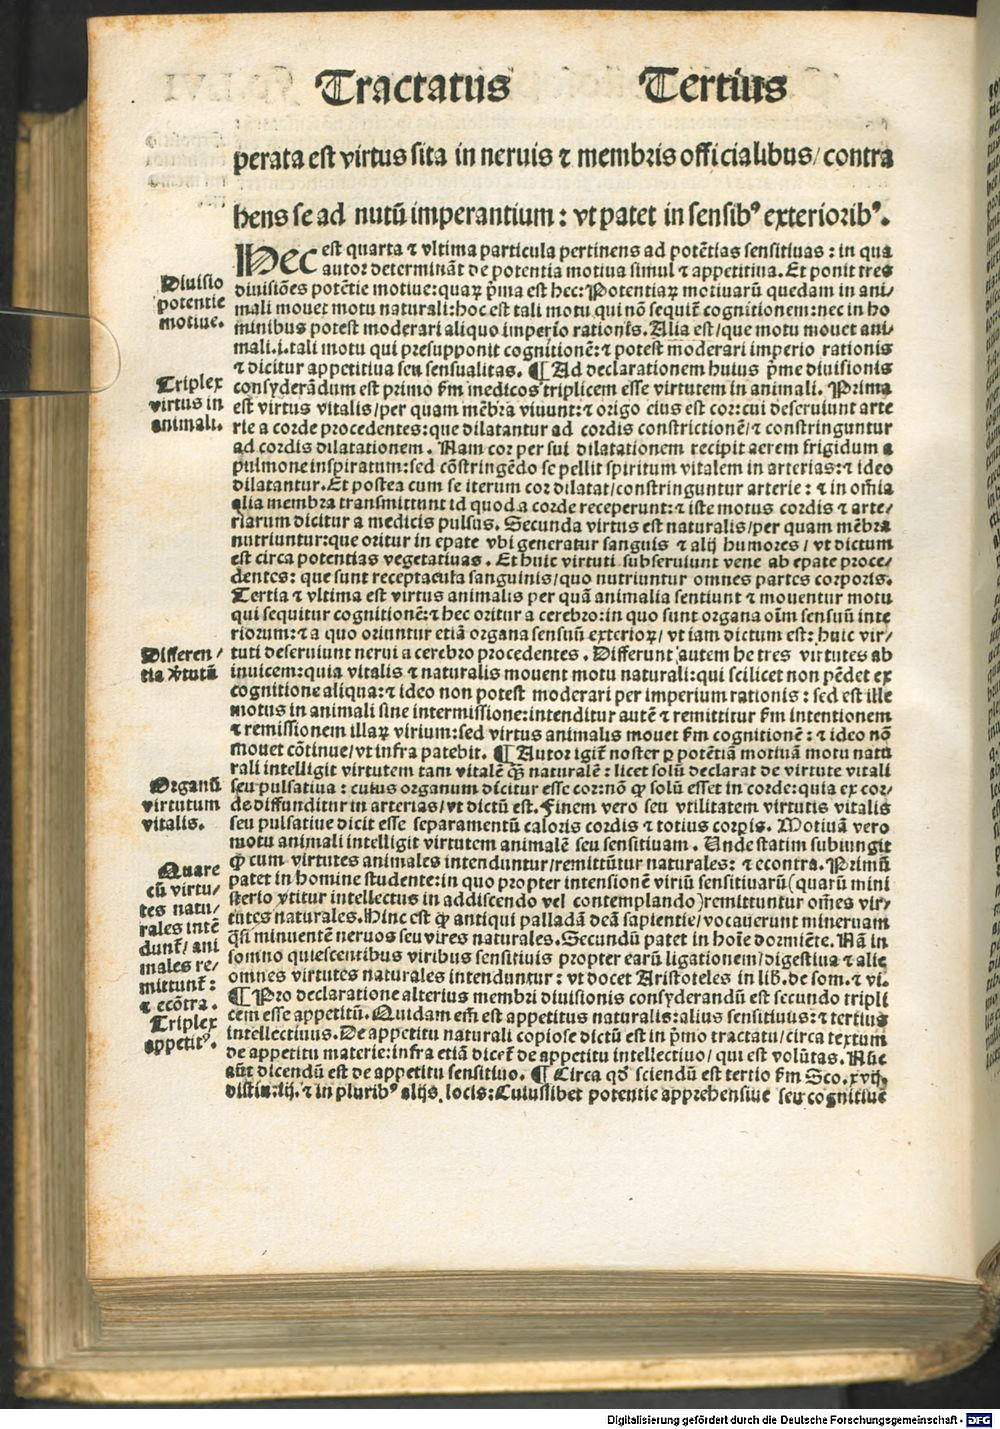 Tractatus Tertius
perata est virtus sita in neruis ⁊ membris officialibus/ contra
hens se ad nutū imperantium: vt patet in sensibꝰ exterioribꝰ.
Hec est quarta ⁊ vltima particula pertinens ad potētias sensitiuas: in qua
autor determināt de potentia motiua simul ⁊ appetitiua. Et ponit tres
Diuisio
potentie
motiue.
diuisiōes potētie motiue: quaꝝ p̄ma est hec: Potentiaꝝ motiuarū quedam in ani/
mali mouet motu naturali: hoc est tali motu qui nō sequit̄ cognitionem: nec in ho
minibus potest moderari aliquo imperio rationis. Alia est/ que motu mouet ani/
mali .i. tali motu qui presupponit cognitionē: ⁊ potest moderari imperio rationis
⁊ dicitur appetitiua seu sensualitas. ¶ Ad declarationem huius p̄me diuisionis
Triplex
virtus in
animali.
consyderādum est primo ẜm medicos triplicem esse virtutem in animali. Prima
est virtus vitalis/ per quam mēbra viuunt: ⁊ origo eius est cor: cui deseruiunt arte
rie a corde procedentes: que dilatantur ad cordis constrictionē/ ⁊ constringuntur
ad cordis dilatationem. Nam cor per sui dilatationem recipit aerem frigidum a
pulmone inspiratum: sed cōstringēdo se pellit spiritum vitalem in arterias: ⁊ ideo
dilatantur. Et postea cum se iterum cor dilatat/ constringuntur arterie: ⁊ in om̄ia
alia membra transmittunt id quod a corde receperunt: ⁊ iste motus cordis ⁊ arte/
riarum dicitur a medicis pulsus. Secunda virtus est naturalis/ per quam mēbra
nutriuntur: que oritur in epate vbi generatur sanguis ⁊ alij humores/ vt dictum
est circa potentias vegetatiuas. Et huic virtuti subseruiunt vene ab epate proce/
dentes: que sunt receptacula sanguinis/ quo nutriuntur omnes partes corporis.
Tertia ⁊ vltima est virtus animalis per quā animalia sentiunt ⁊ mouentur motu
qui sequitur cognitionē: ⁊ hec oritur a cerebro: in quo sunt organa oīm sensuū inte
riorum: ⁊ a quo oriuntur etiā organa sensuū exterioꝝ/ vt iam dictum est: huic vir/
Differen/
tia v̄tutū
tuti deseruiunt nerui a cerebro procedentes. Differunt autem he tres virtutes ab
inuicem: quia vitalis ⁊ naturalis mouent motu naturali: qui scilicet non pēdet ex
cognitione aliqua: ⁊ ideo non potest moderari per imperium rationis: sed est ille
motus in animali sine intermissione: intenditur autē ⁊ remittitur ẜm intentionem
⁊ remissionem illaꝝ virium: sed virtus animalis mouet ẜm cognitionē: ⁊ ideo nō
mouet cōtinue/ vt infra patebit. ¶ Autor igit̄ noster ꝑ potētiā motiuā motu natu
rali intelligit virtutem tam vitalē q̄ȝ naturalē: licet solū declarat de virtute vitali
Organū
virtutum
vitalis.
seu pulsatiua: cuius organum dicitur esse cor: nō ꝙ solū esset in corde: quia ex cor/
de diffunditur in arterias/ vt dictū est. Finem vero seu vtilitatem virtutis vitalis
seu pulsatiue dicit esse separamentū caloris cordis ⁊ totius corpis. Motiuā vero
motu animali intelligit virtutem animalē seu sensitiuam. Unde statim subiungit
Quare
cū virtu/
tes natu/
rales intē
dunt̄/ ani
males re/
mittunt̄:
⁊ ecōtra.
ꝙ cum virtutes animales intenduntur/ remittūtur naturales: ⁊ econtra. Primū
patet in homine studente: in quo propter intensionē viriū sensitiuarū (quarū mini
sterio vtitur intellectus in addiscendo vel contemplando) remittuntur om̄es vir/
tutes naturales. Hinc est ꝙ antiqui palladā deā sapientie/ vocauerunt mineruam
q̄si minuentē neruos seu vires naturales. Secundū patet in hoīe dormiēte. Nā in
somno quiescentibus viribus sensitiuis propter earū ligationem/ digestiua ⁊ alie
omnes virtutes naturales intenduntur: vt docet Aristoteles in lib. de som. ⁊ vi.
¶ Pro declaratione alterius membri diuisionis consyderandū est secundo tripli
Triplex
appetitꝰ.
cem esse appetitū. Quidam em̄ est appetitus naturalis: alius sensitiuus: ⁊ tertius
intellectiuus. De appetitu naturali copiose dictū est in p̄mo tractatu/ circa textum
de appetitu materie: infra etiā dicet̄ de appetitu intellectiuo/ qui est volūtas. Nūc
aūt dicendū est de appetitu sensitiuo. ¶ Circa qd̄ sciendū est tertio ẜm Sco. xvij.
distin. iij. ⁊ in pluribꝰ alijs locis: Cuiuslibet potentie apprehensiue seu cognitiue
Digitalisierung gefördert durch die Deutsche Forschungsgemeinschaft - DFG